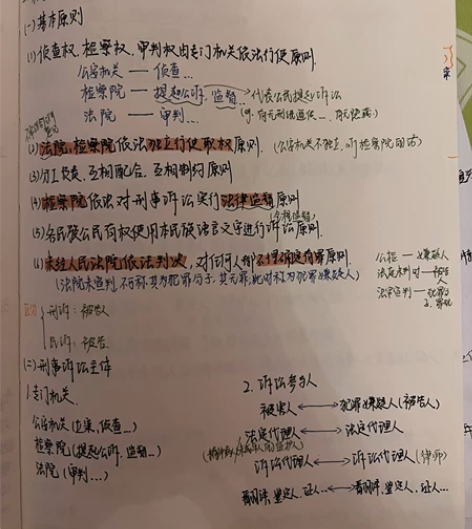 (一)基本原则
(1)侦查权、检察权、审判权由专门机关依法行使原则.
公安机关 — 侦查...
检察院 — 提起公诉、监督... → 代表公民提起诉讼
法院 — 审判...
(2)法院、检察院依法独立行使职权原则.
(3)分工负责、互相配合、互相制约原则
(4)检察院依法对刑事诉讼实行法律监督原则
(5)各民族公民有权使用本民族语言文字进行诉讼原则.
(6)未经人民法院依法判决,对任何人都不得确定有罪原则.
(法院未审判,不可称其为犯罪分子,其无罪,此时称为犯罪嫌疑人)
公检 — 嫌疑人
法院未判时 — 被告人
刑诉:被告人
民诉:被告
(二)刑事诉讼主体
1.专门机关
公安机关(立案、侦查...)
检察院(提起公诉、监督...)
法院(审判...)
2.诉讼参与人
被害人 ↔ 犯罪嫌疑人(被告人)
法定代理人 ↔ 法定代理人
诉讼代理人 ↔ 诉讼代理人(律师)
翻译、鉴定人、证人... ↔ 翻译、鉴定人、证人...